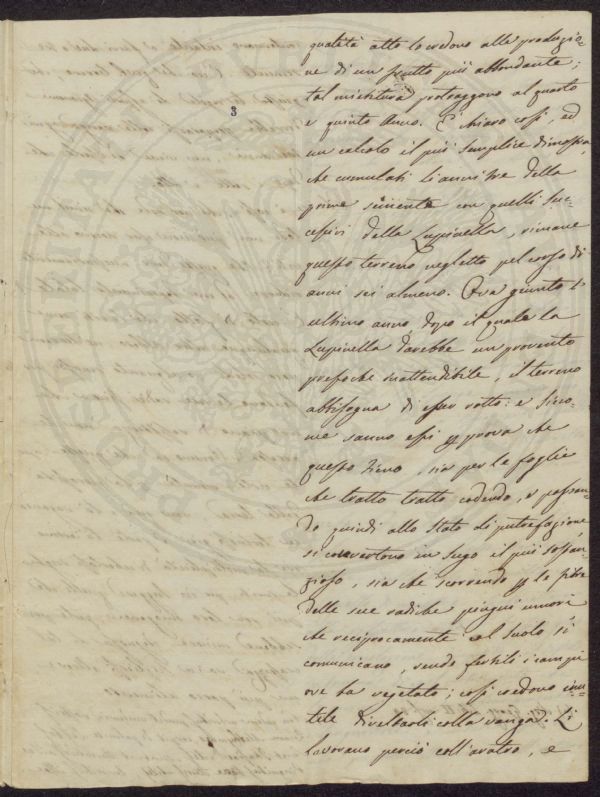 3
qualità atto lo credono alla produzio-
ne di un frutto più abbondante;
tal mistura protraggono al quarto
e quinto Anno. È chiaro così, ed
un calcolo il più semplice dimostra,
che cumulati li anni tre della
prima semente con quelli suc-
cessivi della Lupinella, rimane
questo terreno negletto pel corso di
anni sei almeno. Ora giunto l'
ultimo anno, dopo il quale la
Lupinella darebbe un provento
pressoche inattendibile, il terreno
abbisogna di esser rotto: e sico-
me sanno essi p prova che
questo fieno, sia per le foglie
che tratto tratto cadendo, e passan-
do quindi allo stato di putrefazione,
si convertono in sugo il più sostan-
zioso, sia che scorrendo p le fibre
delle sue radiche pingui umori,
che reciprocamente al suolo si
comunicano, rende fertili i campi
ove ha vegetato; così credono inu-
tile divellarli colla vanga. Li
lavorano perciò coll'aratro, e